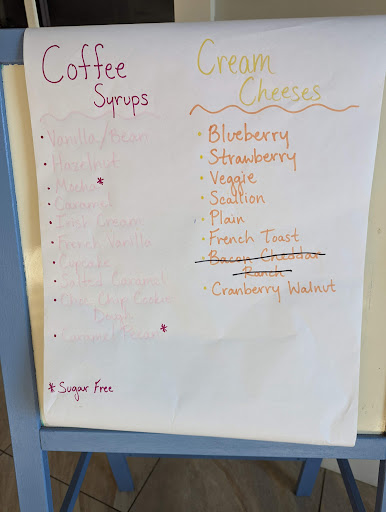 Coffee
Syrups
• Vanilla/Bean
• Hazelnut
• Mocha *
• Caramel
• Irish Cream
• French Vanilla
• Cupcake
• Salted Caramel
• Choc Chip Cookie
Dough
• Caramel Pecan *
* Sugar Free
Cream
Cheeses
• Blueberry
• Strawberry
• Veggie
• Scallion
• Plain
• French Toast
• Bacon Cheddar
Ranch
• Cranberry Walnut